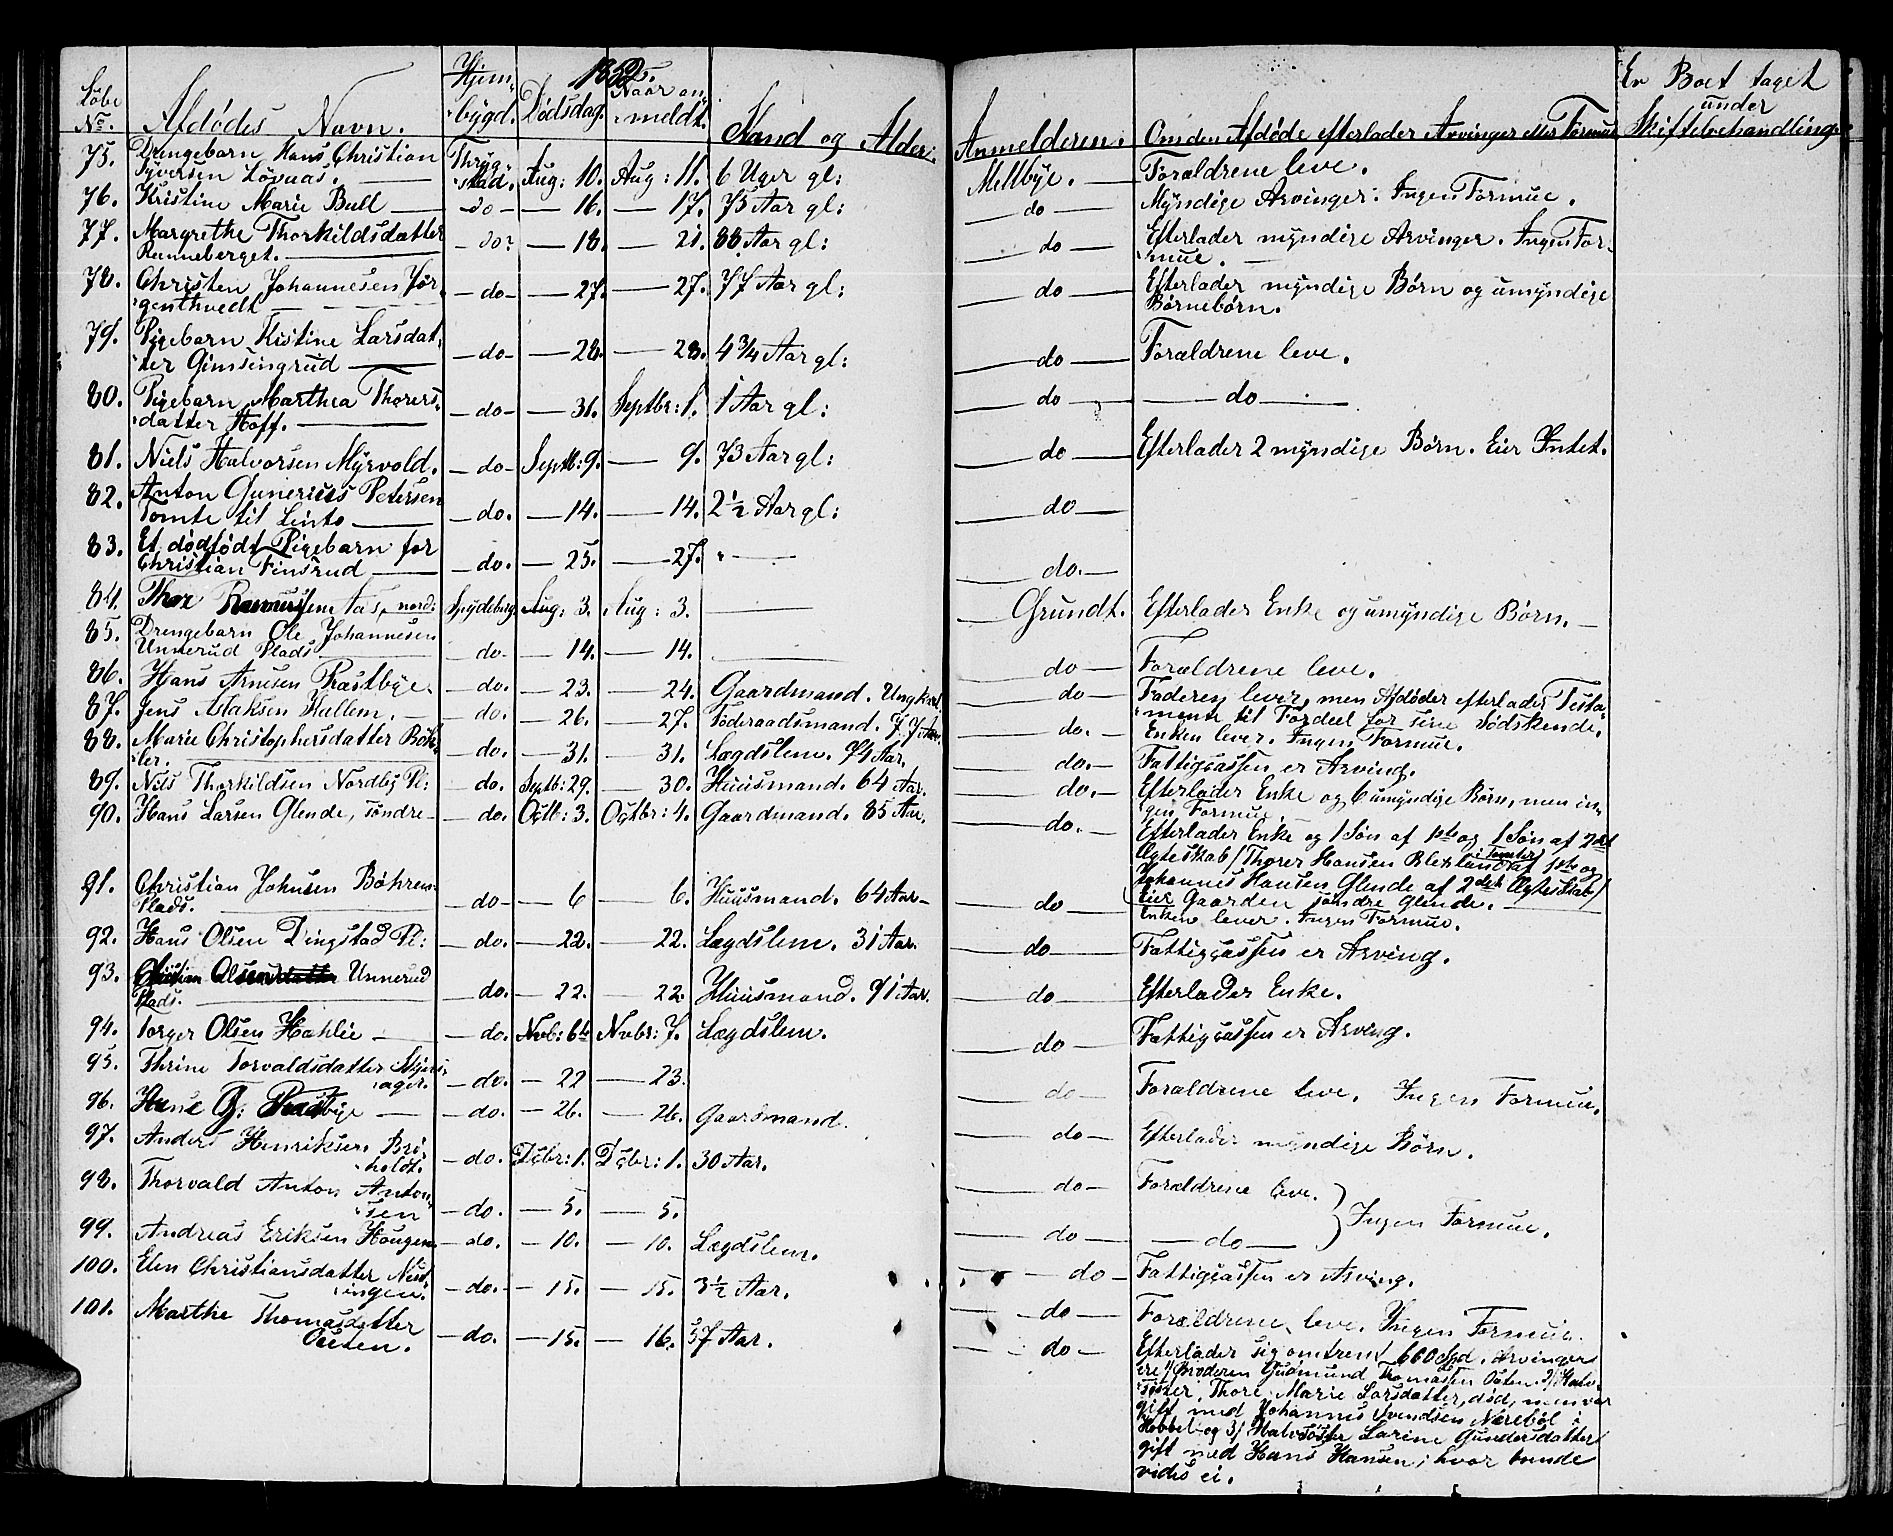 Løbe No. Afdødes Navn. Hjem-bygd. 1852. Dødsdag. Naar an-meldt. Stand og Alder. Anmelderen. Om den Afdøde efterlader Arvinger eller Formue Er Boet taget under Skiftebehandling
75. Drengebarn Hans Christian Thryg- Aug: 10. Aug: 11. 6 Uger gl: Mellbye. Forældrene leve.
Syversen Løvaas. stad.
76. Kristine Marie Bull do 16. 17. 75 Aar gl: do Myndige Arvinger. Ingen Formue.
77. Margrethe Thorkildsdatter do 18. 21. 88 Aar gl: do Efterlader myndige Arvinger. Ingen For-
Runneberget. mue.
78. Christen Johannesen Jør- do 27. 27. 77 Aar gl: do Efterlader myndige Børn og umyndige
genthvedt Børnebørn.
79. Pigebarn Kistine Larsdat- do 28. 28. 4 3/4 Aar gl: do Forældrene leve.
ter Gimsingrud
80. Pigebarn Marthea Thorers- do 31. Septbr: 1. 1 Aar gl: do do
datter Hoff.
81. Niels Halvorsen Myrvold. do Septb: 9. 9. 73 Aar gl: do Efterlader 2 myndige Børn. Eier Intet.
82. Anton Gunerius Petersen do. 14. 14. 2 1/2 Aar gl: do
Tomte til Linto
83. Et dødfødt Pigebarn for do. 25. 27. " do.
Christian Finsrud
84. Thore Rasmussen Aas, nord: Spydeberg Aug: 3. Aug: 3. Grundt. Efterlader Enke og umyndige Børn.
85. Drengebarn Ole Johannesen do 14. 14. do Forældrene leve.
Unnerud Plads
86. Hans Arnesen Præstbye. do. 23. 24. Gaardmand. Ungkarl. do Faderen lever, men Afdøde efterlader Testa-
mente til Fordeel for sine Sødskende.
87. Jens Aslaksen Hallem. do. 26. 27. Føderaadsmand. 77 Aar. do. Enken lever. Ingen Formue.
88. Marie Christophersdatter Bøh- do. 31. 31. Lægdslem. 74 Aar. do. Fattigcassen er Arving.
ler.
89. Niels Thorkildsen Nordby Pl: do. Septb: 29. 30. Huusmand. 64 Aar. do. Efterlader Enke og 6 umyndige Børn, men in-
gen Formue.
90. Hans Larsen Glende, søndre do. Octb: 3. Octbr: 4. Gaardmand. 85 Aar. do. Efterlader Enke og 1 Søn af 1ste og 1 Søn af 2det
Ægteskab/Thorer Hansen i Tomter af 1ste og
Johannes Hansen Glende af 2det Ægteskab/
Eier Gaarden søndre Glende.
91. Christian Johnsen Bøhren do 6 6. Huusmand. 64 Aar do Enken lever. Ingen Formue.
Plads.
92. Hans Olsen Dingstad Pl: do. 22. 22. Lægdslem. 31 Aar. do Fattigcassen er Arving.
93. Christian Olsen Unnerud do. 22. 22. Huusmand. 91 Aar. do Efterlader Enke.
Plads.
94. Torger Olsen Hahlie do. Novb: 6te Novbr: 7. Lægdslem. do Fattigcassen er Arving.
95. Thrine Torvaldsdatter do. 22 23. do Forældrene leve. Ingen Formue.
ager.
96. Hans G: Præstbye do. 26. 26. Gaardmand. do Efterlader myndige Børn.
97. Anders Henriksen Bri- do. Dcbr: 1. Dcbr: 1. 30 Aar. do Forældrene leve.
holdt.
98. Thorvald Anton Anton- do. 5. 5. do do Ingen Formue.
sen
99. Andreas Eriksen Haugen do. 10. 10. Lægdslem. do Fattigcassen er Arving.
100. Elen Christiansdatter do. 15. 15. 3 1/2 Aar. do Forældrene leve. Ingen Formue.
ingen.
101. Marthe Thomasdatter do. 15. 16. 57 Aar. do Efterlader sig omtrent 660 Spd. Arvinger
Ousten. ere 1/ Broderen Gudmund Thomassen Ousten. 2/ Halv-
søster, Thore Marie Larsdatter, død, men var
gift med Johannes Svendsen Nærebøl i
Hobbøl og 3/ Halvsøster Larine Gundersdatter
gift med Hans Hansen; hvor boende
vides ei.